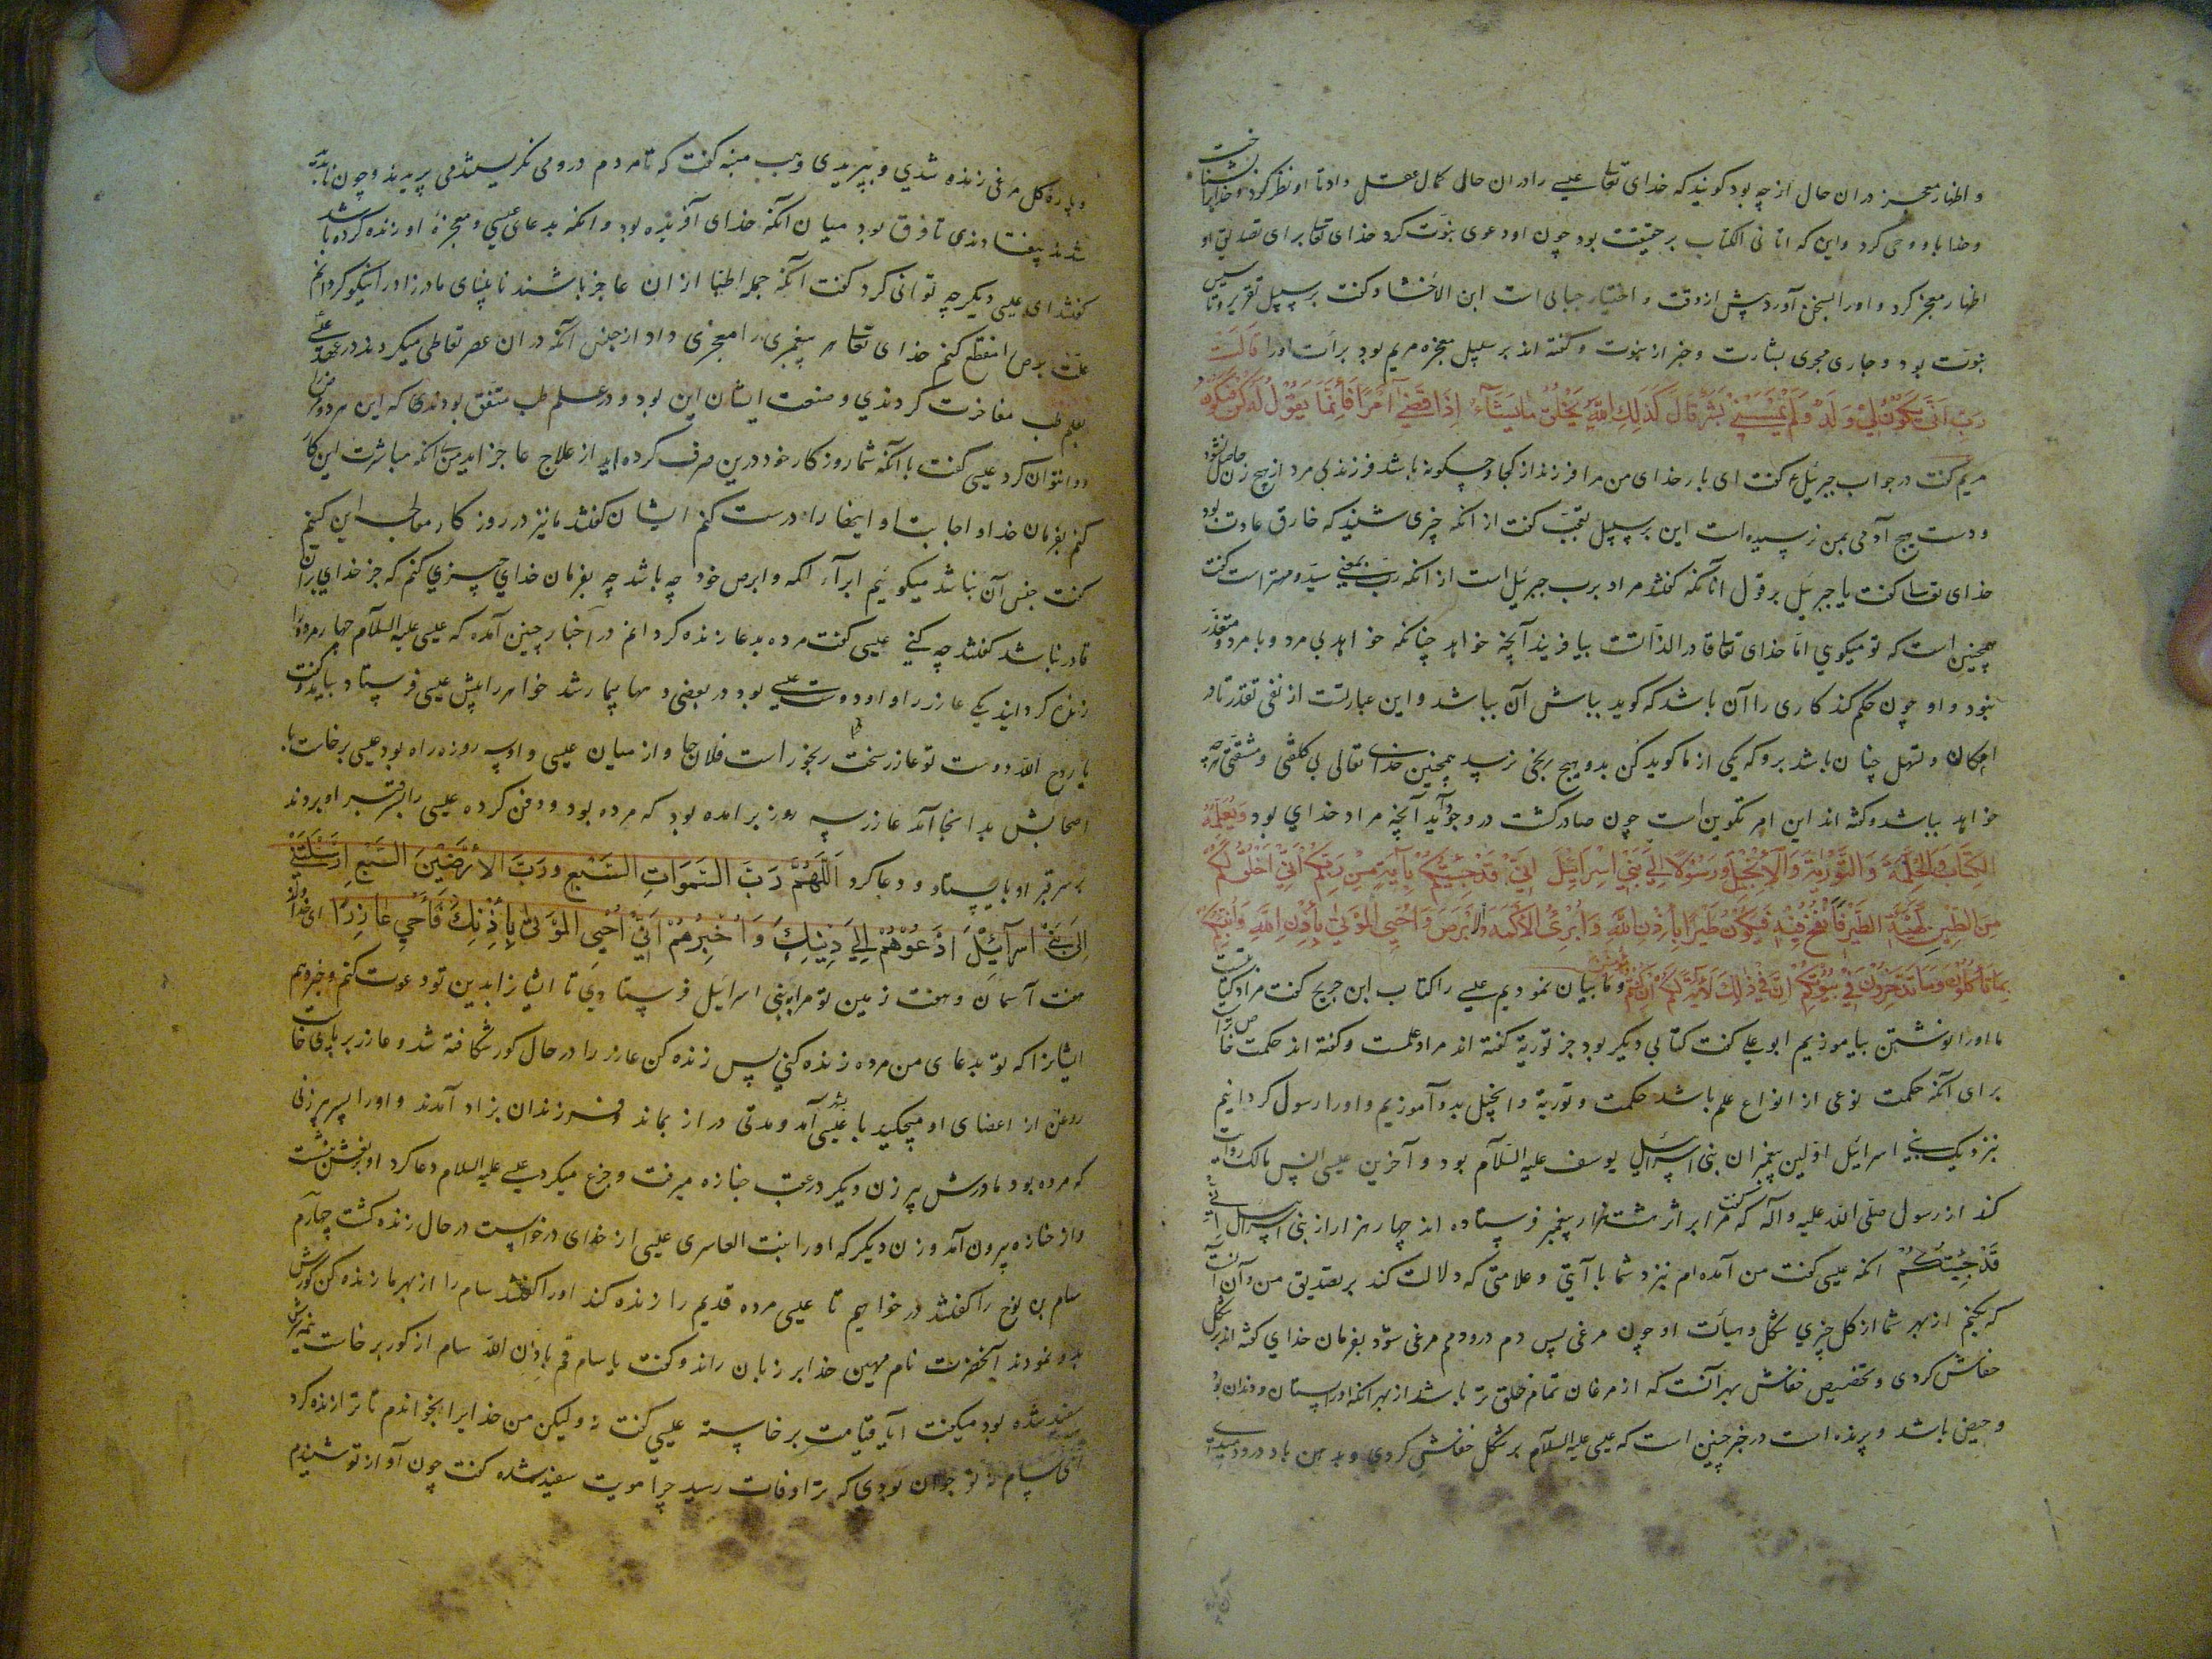 و اظهار معجز در ان حال از چه بود کویند که خدای تعالی عیسی را در ان حال کمال عقل داد تا او نظر کرد و خدایرا بشناخت
و خدا باو وحی کرد و این که اتانی الکتاب بر حقیقت بود چون او دعوی نبوت کرد خدای تعالی برای تصدیق او
اظهار معجز کرد و او را بسخن آورد پیش از وقت و اختیار جبائی است ابن الاخشاد کفت بر سبیل تقریر و تاسیس
نبوت بود و جاری مجری بشارت و خبر از نبوت و کفته اند بر سبیل معجزه مریم بود برائت او را قَالَتْ
رَبِّ اَنّٰی یَکُوْنُ لِیْ وَلَدٌ وَلَمْ یَمْسَسْنِیْ بَشَرٌ قَالَ کَذٰلِكِ اللّٰهُ یَخْلُقُ مَا یَشَآءُ اِذَا قَضٰی اَمْرًا فَاِنَّمَا یَقُوْلُ لَهُ کُنْ فَیَکُوْنُ
مریم کفت در جواب جبرئیل ع کفت ای بار خدای من مرا فرزند از کجا و چکونه باشد فرزند بی مرد از هیچ زن حاصل نشود
و دست هیچ آدمی بمن نرسیده است این بر سبیل تعجب کفت از انکه چیزی شنید که خارق عادت بود
خدای تعالی کفت یا جبرئیل بر قول انانکه کفتند مراد برب جبرئیل است از انکه رب بمعنی سید و مهتر است کفت
همچنین است که تو میکویی اما خدای تعالی قادر الذاتست بیافریند آنچه خواهد چنانکه خواهد بی مرد و با مرد و متعذر
نبود و او چون حکم کند کاری را آن باشد که کوید بباش آن بباشد و این عبارتست از نفی تعذر تا در
امکان و تسهل چنان باشد برو که یکی از ما کوید کن بدو هیچ رنجی نرسد همچنین خدای تعالی بی کلفتی و مشقتی هر چه
خواهد بباشد و کفته اند این امر تکوین است چون صادر کشت در وجود آید آنچه مراد خدای بود وَیُعَلِّمُهُ
الْکِتَابَ وَالْحِکْمَةَ وَالتَّوْرٰیةَ وَالْاِنْجِیْلَ وَرَسُوْلًا اِلٰی بَنِیْ اِسْرَآئِیْلَ اَنِّیْ قَدْ جِئْتُکُمْ بِاٰیَةٍ مِنْ رَبِّکُمْ اَنِّیْ اَخْلُقُ لَکُمْ
مِنَ الطِّیْنِ کَهَیْئَةِ الطَّیْرِ فَاَنْفُخُ فِیْهِ فَیَکُوْنُ طَیْرًا بِاِذْنِ اللّٰهِ وَاُبْرِئُ الْاَکْمَهَ وَالْاَبْرَصَ وَاُحْیِی الْمَوْتٰی بِاِذْنِ اللّٰهِ وَاُنَبِّئُکُمْ
بِمَا تَاْکُلُوْنَ وَمَا تَدَّخِرُوْنَ فِیْ بُیُوْتِکُمْ اِنَّ فِیْ ذٰلِكَ لَاٰیَةً لَکُمْ اِنْ کُنْتُمْ مُؤْمِنِیْنَ و ما بیان نمودیم عیسی را کتاب ابن جریج کفت مراد کتابتست
ما او را نوشتن بیاموزیم ابو علی کفت کتابی دیکر بود جز توریة کفته اند مراد علمست و کفته اند حکمت خاص تر است
برای آنکه حکمت نوعی از انواع علم باشد حکمت و توریة و انجیل بدو آموزیم و او را رسول کردانیم
بنزدیک بنی اسرائیل اولین پیغمبران بنی اسرائیل یوسف علیه السلام بود و آخرین عیسی انس مالک روایت
کند از رسول صلی الله علیه و آله که کفت مرا بر اثر هشت هزار پیغمبر فرستاده اند چهار هزار از بنی اسرائیل اَنِّیْ
قَدْ جِئْتُکُمْ انکه عیسی کفت من آمده ام بنزد شما با آیتی و علامتی که دلالت کند بر تصدیق من و آن آنست
که بکنم از بهر شما از کل چیزی بشکل و هیأت او چون مرغی پس دم درو دمم مرغی شود بفرمان خدای کفته اند بر شکل
خفاش کردی و تخصیص خفاش بهر آنست که از مرغان تمام خلق تر باشد از بهر انکه او را پستان و دندان بود
و حیض باشد و پرنده است در خبر چنین است که عیسی علیه السلام بر شکل خفاش کردی و بدهن باد درو دمیدی
و پاره کل مرغی زنده شدی و بپریدی وهب منبه کفت که تا مردم درو می نکریستند می پریدند و چون ناپدید
شدند بیفتادندی تا فرق بود میان آنکه خدای آفریده بود و انکه بدعای عیسی و معجزه او زنده کرده باشد
کفتند ای عیسی دیکر چه توانی کرد کفت آنکه جمله اطبا از ان عاجز باشند نابینای مادرزاد را نیکو کردانم
علت برص را منقطع کنم خدای تعالی هر پیغمبری را معجزی داد از جنس آنکه در ان عصر تعاطی میکردند در عهد عیسی
بعلم طب مفاخرت کردندی و صنعت ایشان این بود و در علم طب متفق بودند که این هر دو مرض را
دوا نتوان کرد عیسی کفت با آنکه شما روزکار خود درین صرف کرده اید از علاج عاجز اید من بی آنکه مباشرت این کار
کنم بفرمان خدا و اجابت او اینها را درست کنم ایشان کفتند ما نیز در روزکار معالجه این کنیم
کفت جنس آن نباشد میکویم ابرآء اکمه و ابرص خود چه باشد چه بفرمان خدای چیزی کنم که جز خدای بران
قادر نباشد کفتند چه کنی عیسی کفت مرده بدعا زنده کردانم در اخبار چنین آمده که عیسی علیه السلام چهار مرده را
زنده کردانید یکی عازر را و او دوست عیسی بود در بعضی دهها بیمار شد خواهر را پیش عیسی فرستاد بیامد و کفت
یا روح الله دوست تو عازر سخت رنجور است فلان جا و از میان عیسی و او سه روزه راه بود عیسی برخاست با
اصحابش بدانجا آمد عازر سه روز بر آمده بود که مرده بود و دفن کرده عیسی را بر سر قبر او بردند
بر سر قبر او بایستاد و دعا کرد اَللّٰهُمَّ رَبَّ السَّمٰوَاتِ السَّبْعِ وَرَبَّ الْاَرَضِیْنَ السَّبْعِ اَرْسَلْتَنِیْ
اِلٰی بَنِیْ اِسْرَآئِیْلَ اَدْعُوْهُمْ اِلٰی دِیْنِكَ وَاُخْبِرُهُمْ اَنِّیْ اُحْیِی الْمَوْتٰی بِاِذْنِكَ فَاَحْیِ عَازِرًا ای خداوند
هفت آسمان و هفت زمین تو مرا به بنی اسرائیل فرستادی تا ایشانرا بدین تو دعوت کنم و خبر دهم
ایشانرا که تو بدعای من مرده زنده کنی پس زنده کن عازر را در حال کور شکافته شد و عازر بر پای خاست
روغن از اعضای او میچکید با عیسی آمد و مدتی دراز بماند و فرزندان بزاد آمدند و او را پسر پیرزنی
که مرده بود مادرش پیرزن دیکر در عقب جنازه میرفت و جزع میکرد عیسی علیه السلام دعا کرد او بر نعش بنشست
و از جنازه بیرون آمد و زن دیکر که او را بنت العاسری عیسی از خدای درخواست در حال زنده کشت چهارم
سام بن نوح را کفتند در خواهیم تا عیسی مرده قدیم را زنده کند او را کفتند سام را از بهر ما زنده کن کورش
بدو نمودند آنحضرت نام مهین خدا بر زبان راند و کفت یا سام قم باذن الله سام از کور برخاست نیمه سرش
سفید شده بود میکفت آیا قیامت برخاسته عیسی کفت نه و لیکن من خدایرا بخواندم تا ترا زنده کرد
ای سام نه تو جوان بودی که ترا وفات رسید چرا مویت سفید شده کفت چون آواز تو شنیدم